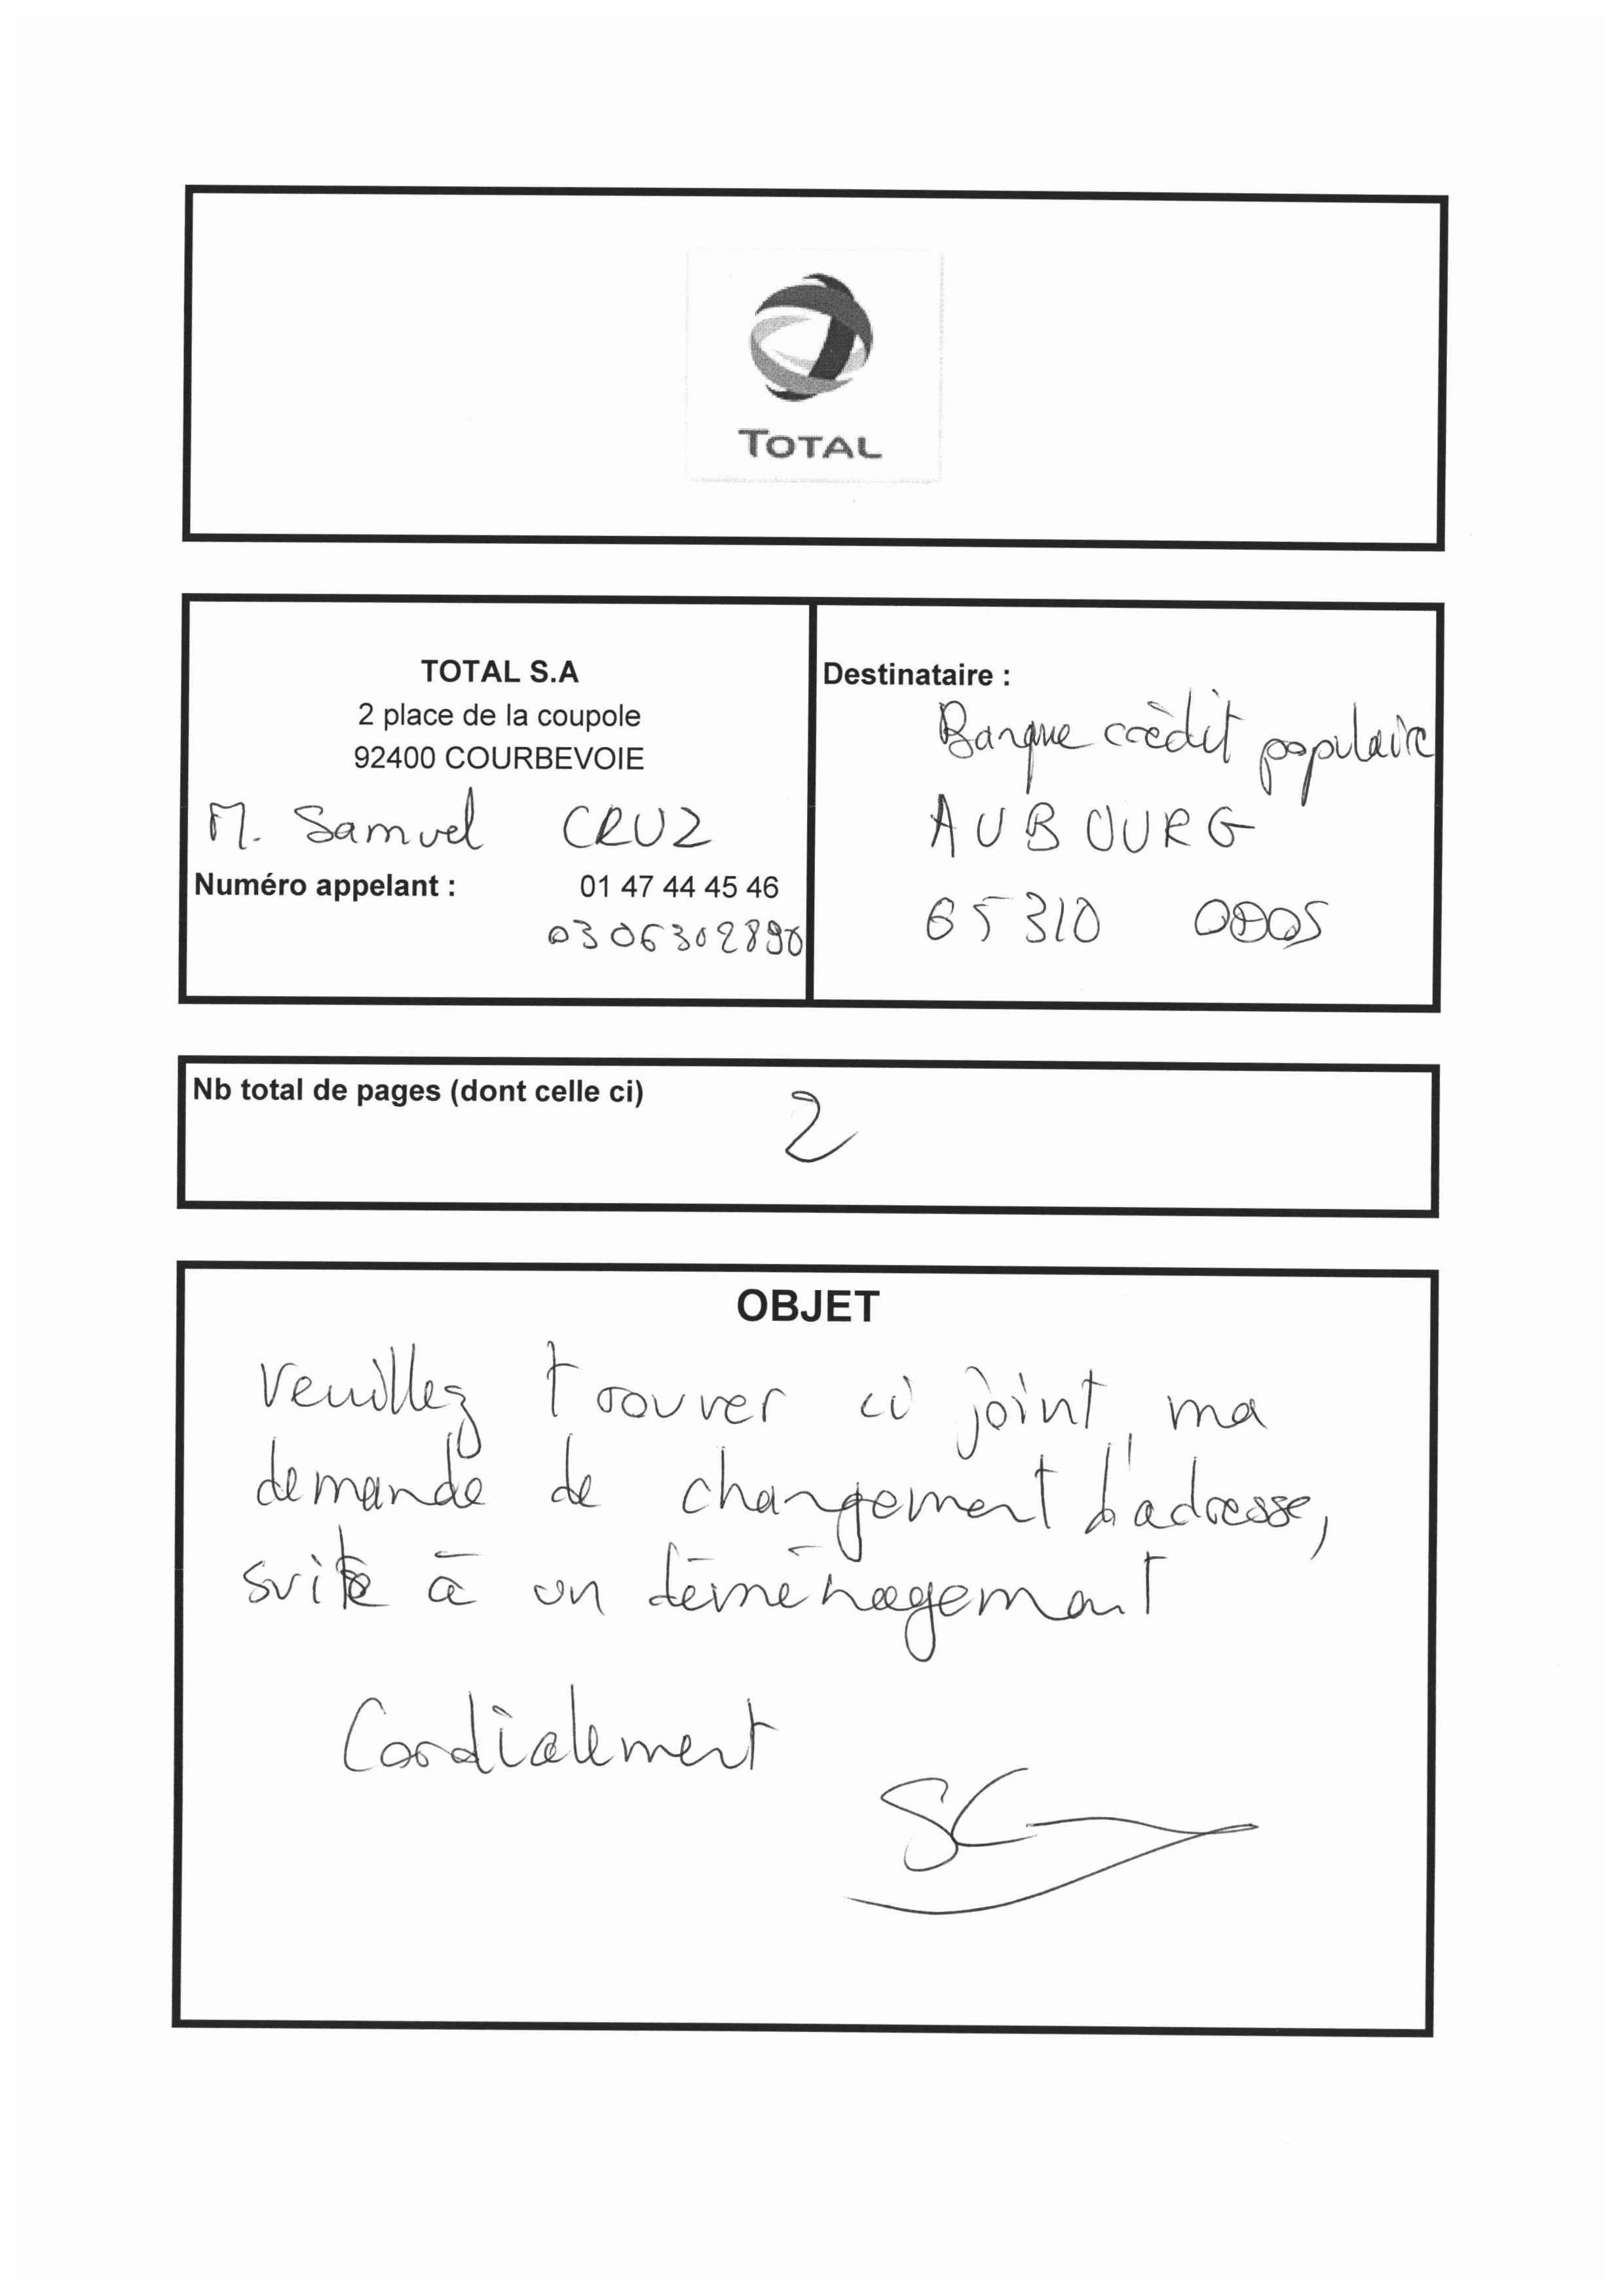 TOTAL
TOTAL S.A
2 place de la coupole
92400 COURBEVOIE
M. Samuel CRUZ
Numéro appelant : 01 47 44 45 46
0306302890
Destinataire :
Banque crédit populaire
AUBOURG
65310 ODOS
Nb total de pages (dont celle ci) 2
OBJET
Veuillez trouver ci joint, ma
demande de changement d'adresse,
suite à un déménagement
Cordialement
SC